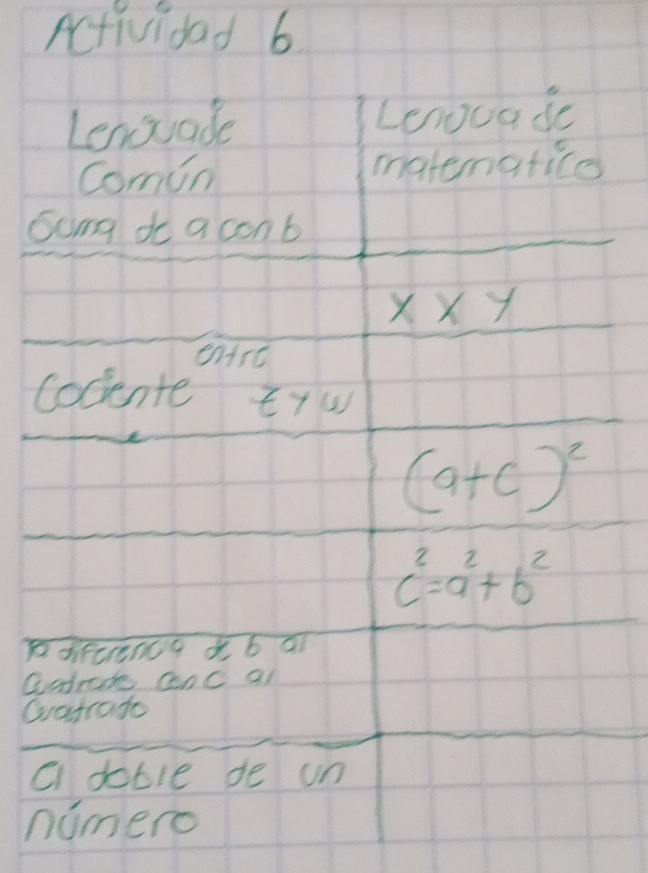 Actividad 6
Lenguaje
Común
Lenguaje
matematico
Suma de a con b
X x Y
entre
Cociente z y w
(a+c)²
c²=a²+b²
la diferencia de b al
cuadrado con c al
cuatrado
el doble de un
número